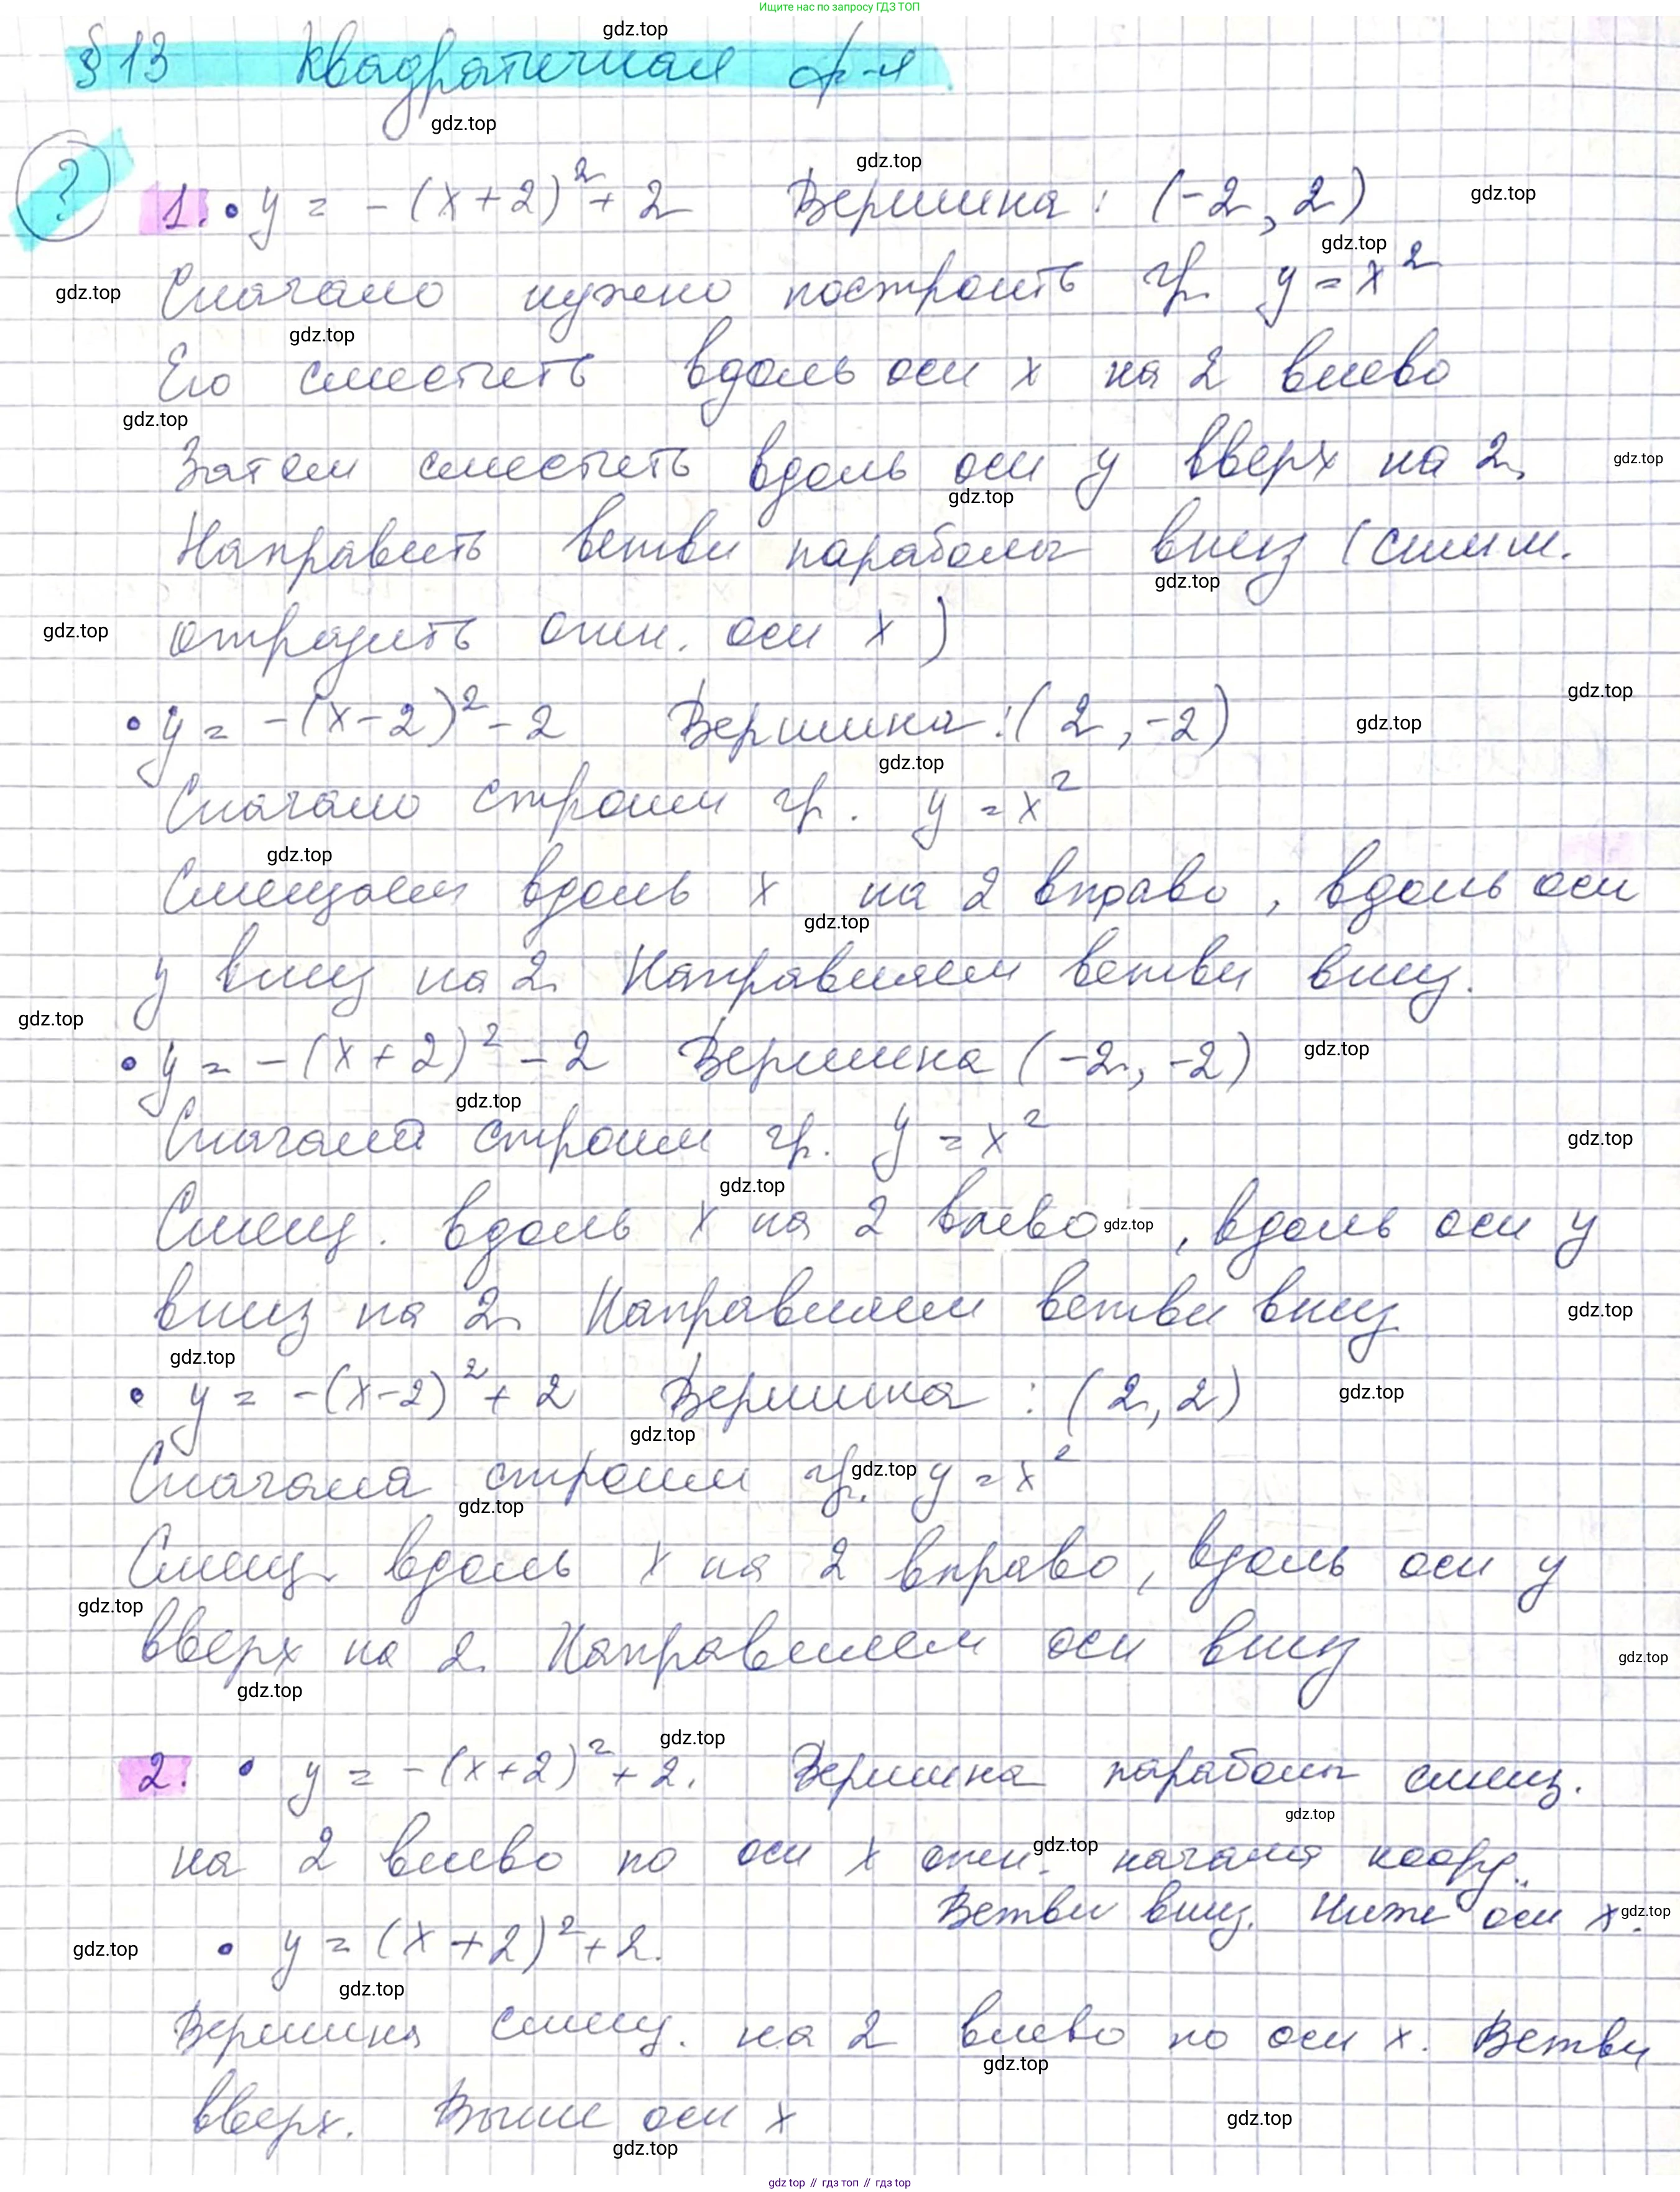 Ищите нас по запросу ГДЗ ТОП
§ 13 Квадратичная ф-я
?
1. • y = -(x+2)² + 2 Вершина: (-2, 2)
Сначало нужно построить гр. y = x²
Его сместить вдоль оси x на 2 влево
Затем сместить вдоль оси y вверх на 2.
Направить ветви параболы вниз (симм.
отразить отн. оси x)
• y = -(x-2)² - 2 Вершина: (2, -2)
Сначало строим гр. y = x²
Смещаем вдоль x на 2 вправо, вдоль оси
y вниз на 2. Направляем ветви вниз.
• y = -(x+2)² - 2 Вершина (-2, -2)
Сначала строим гр. y = x²
Смещ. вдоль x на 2 влево, вдоль оси y
вниз на 2. Направляем ветви вниз
• y = -(x-2)² + 2 Вершина: (2, 2)
Сначала строим гр. y = x²
Смещ. вдоль x на 2 вправо, вдоль оси y
вверх на 2. Направляем оси вниз
2. • y = -(x+2)² + 2. Вершина параболы смещ.
на 2 влево по оси x отн. начала коорд..
Ветви вниз. Ниже оси x.
• y = (x+2)² + 2.
Вершина смещ. на 2 влево по оси x. Ветви
вверх. Выше оси x
gdz top // гдз топ // гдз top